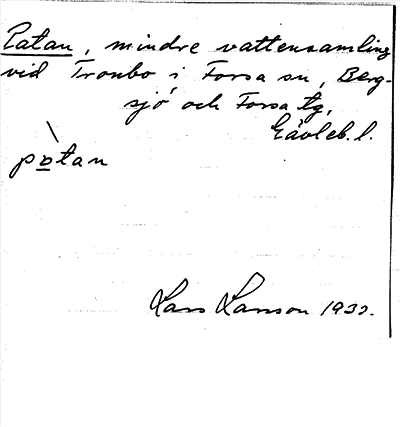 Patan, mindre vattensamling
vid Tronbo i Forsa sn, Berg-
sjö och Forsa tg,
Gävleb. l.
patan
Lars Larsson 1930.